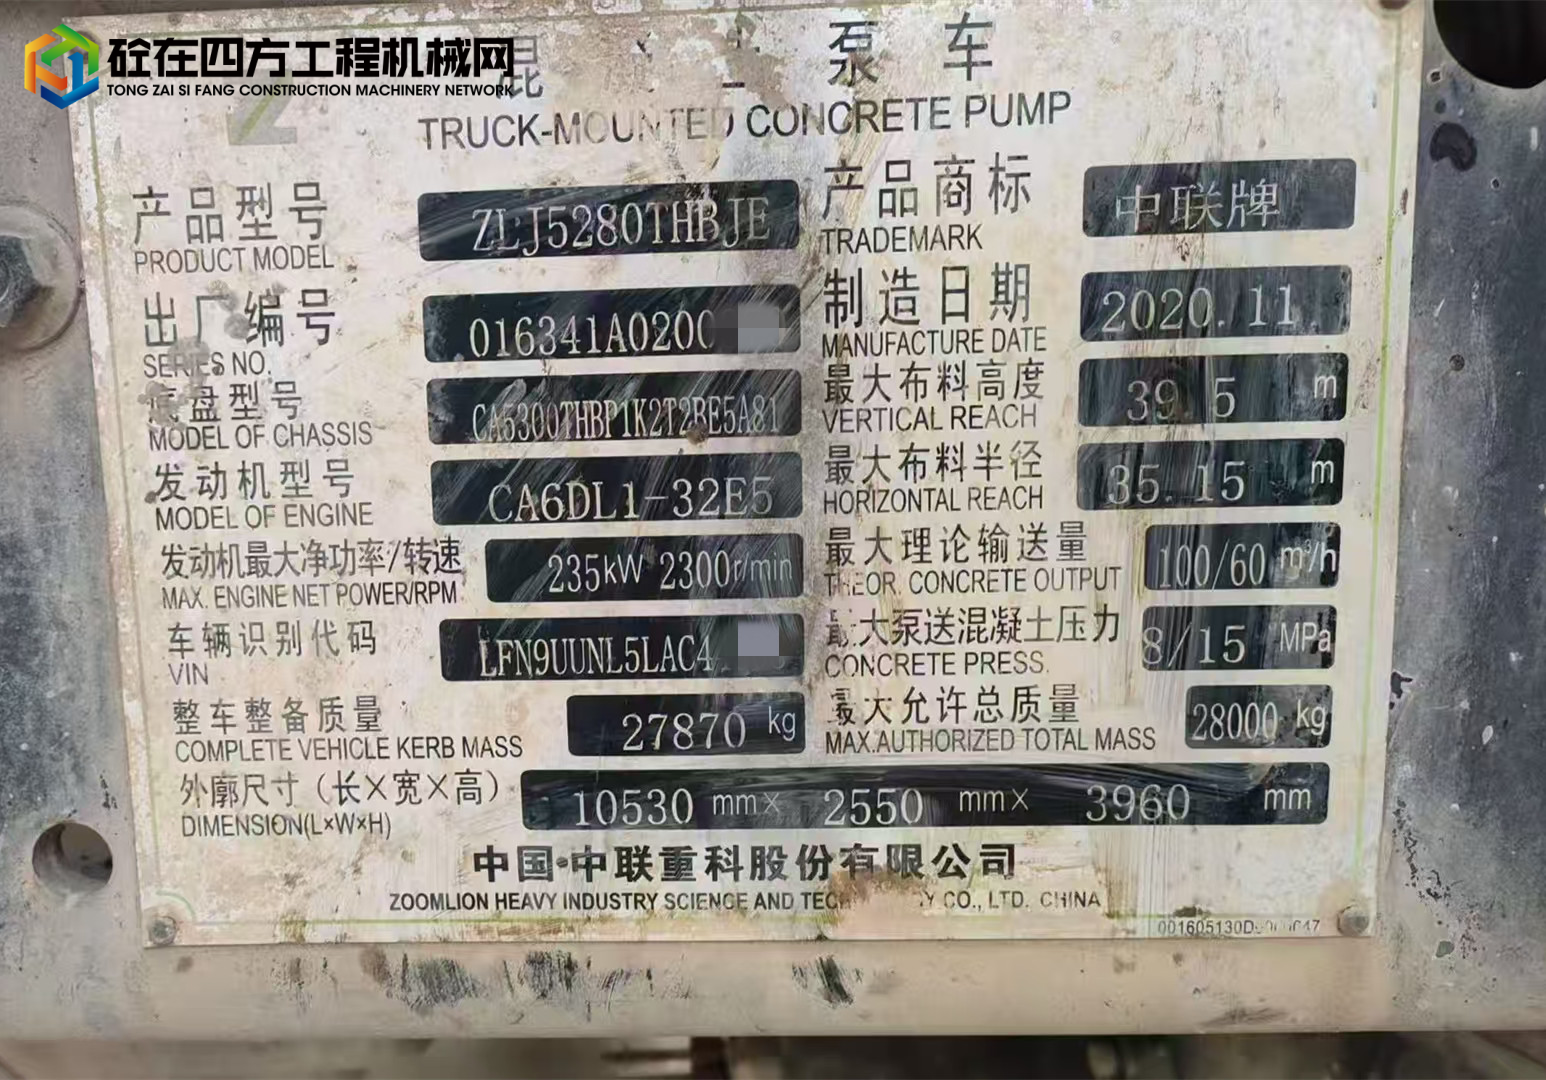 砼在四方工程机械网
TONG ZAI SI FANG CONSTRUCTION MACHINERY NETWORK
混 土 泵 车
TRUCK-MOUNTED CONCRETE PUMP
产品型号 ZLJ5280THBJE 产品商标 中联牌
PRODUCT MODEL TRADEMARK
出厂编号 016341A0200 制造日期 2020.11
SERIES NO. MANUFACTURE DATE
底盘型号 CA5300THBP1K2T2BE5A81 最大布料高度 39.5 m
MODEL OF CHASSIS VERTICAL REACH
发动机型号 CA6DL1-32E5 最大布料半径 35.15 m
MODEL OF ENGINE HORIZONTAL REACH
发动机最大净功率/转速 235kW 2300r/min 最大理论输送量 100/60 m³/h
MAX. ENGINE NET POWER/RPM THEOR. CONCRETE OUTPUT
车辆识别代码 LFN9UUNL5LAC4 最大泵送混凝土压力 8/15 MPa
VIN CONCRETE PRESS.
整车整备质量 27870 kg 最大允许总质量 28000 kg
COMPLETE VEHICLE KERB MASS MAX.AUTHORIZED TOTAL MASS
外廓尺寸（长×宽×高） 10530 mm× 2550 mm× 3960 mm
DIMENSION(L×W×H)
中国·中联重科股份有限公司
ZOOMLION HEAVY INDUSTRY SCIENCE AND TECH Y CO., LTD. CHINA